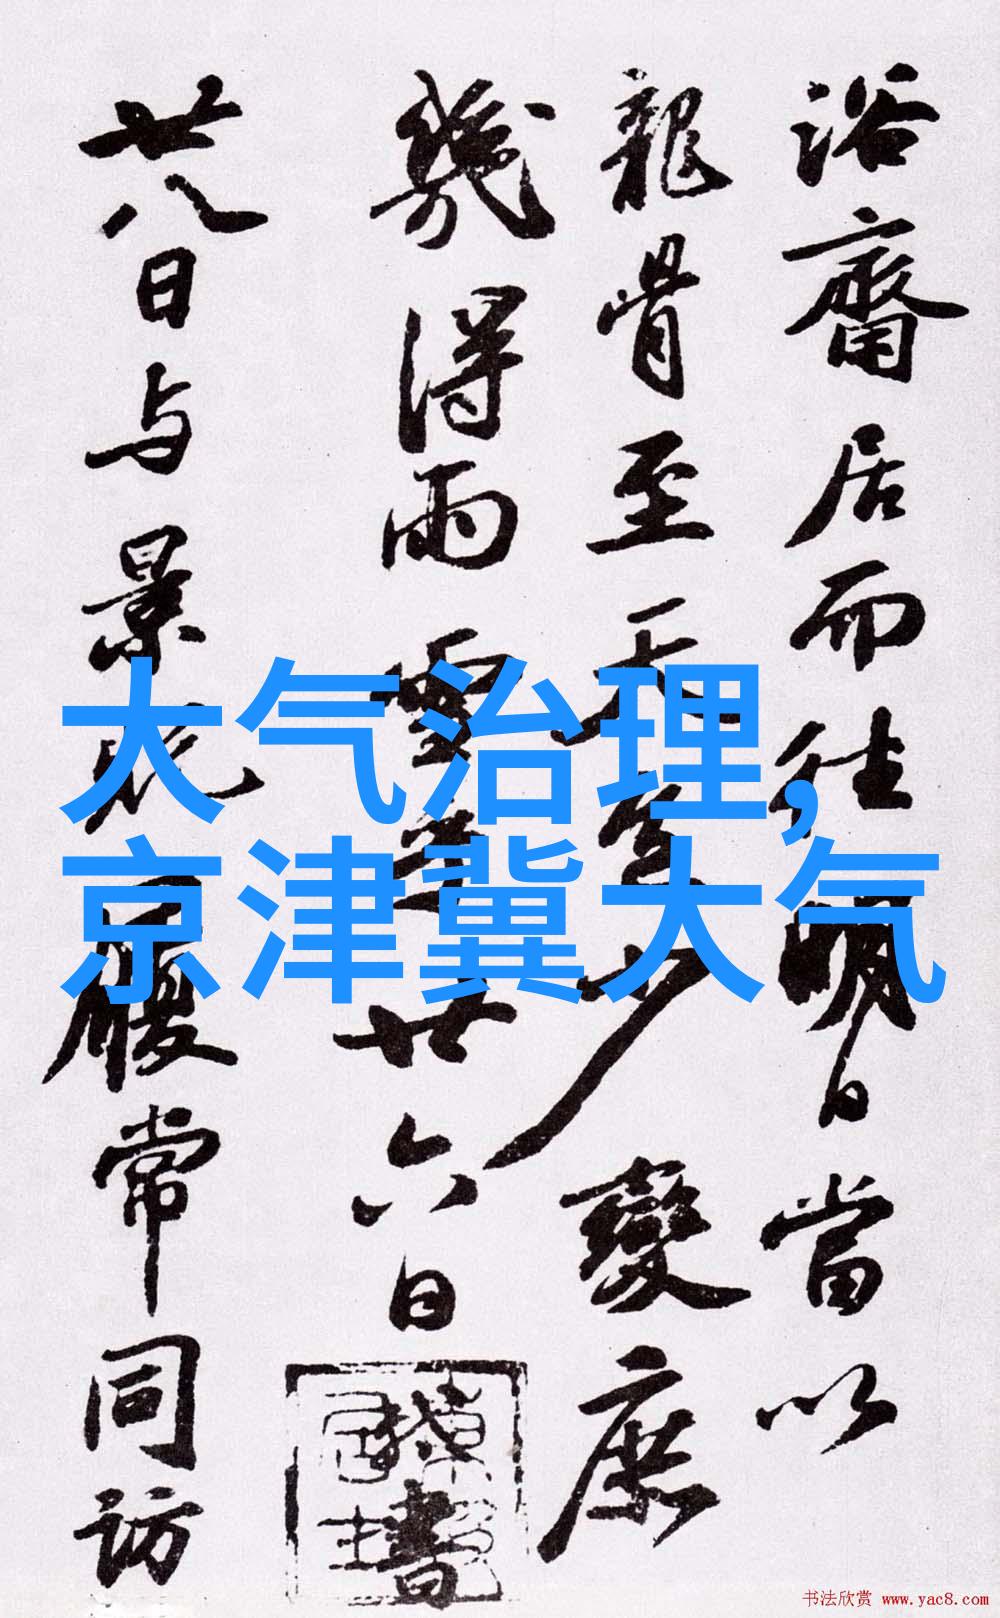 大气治理,
京津冀大气
浴齋居而往明日當以
龍骨至天少變庶
幾得雨雪廿六日書
廿八日与景貺履常同訪
书法欣赏 www.yac8.com